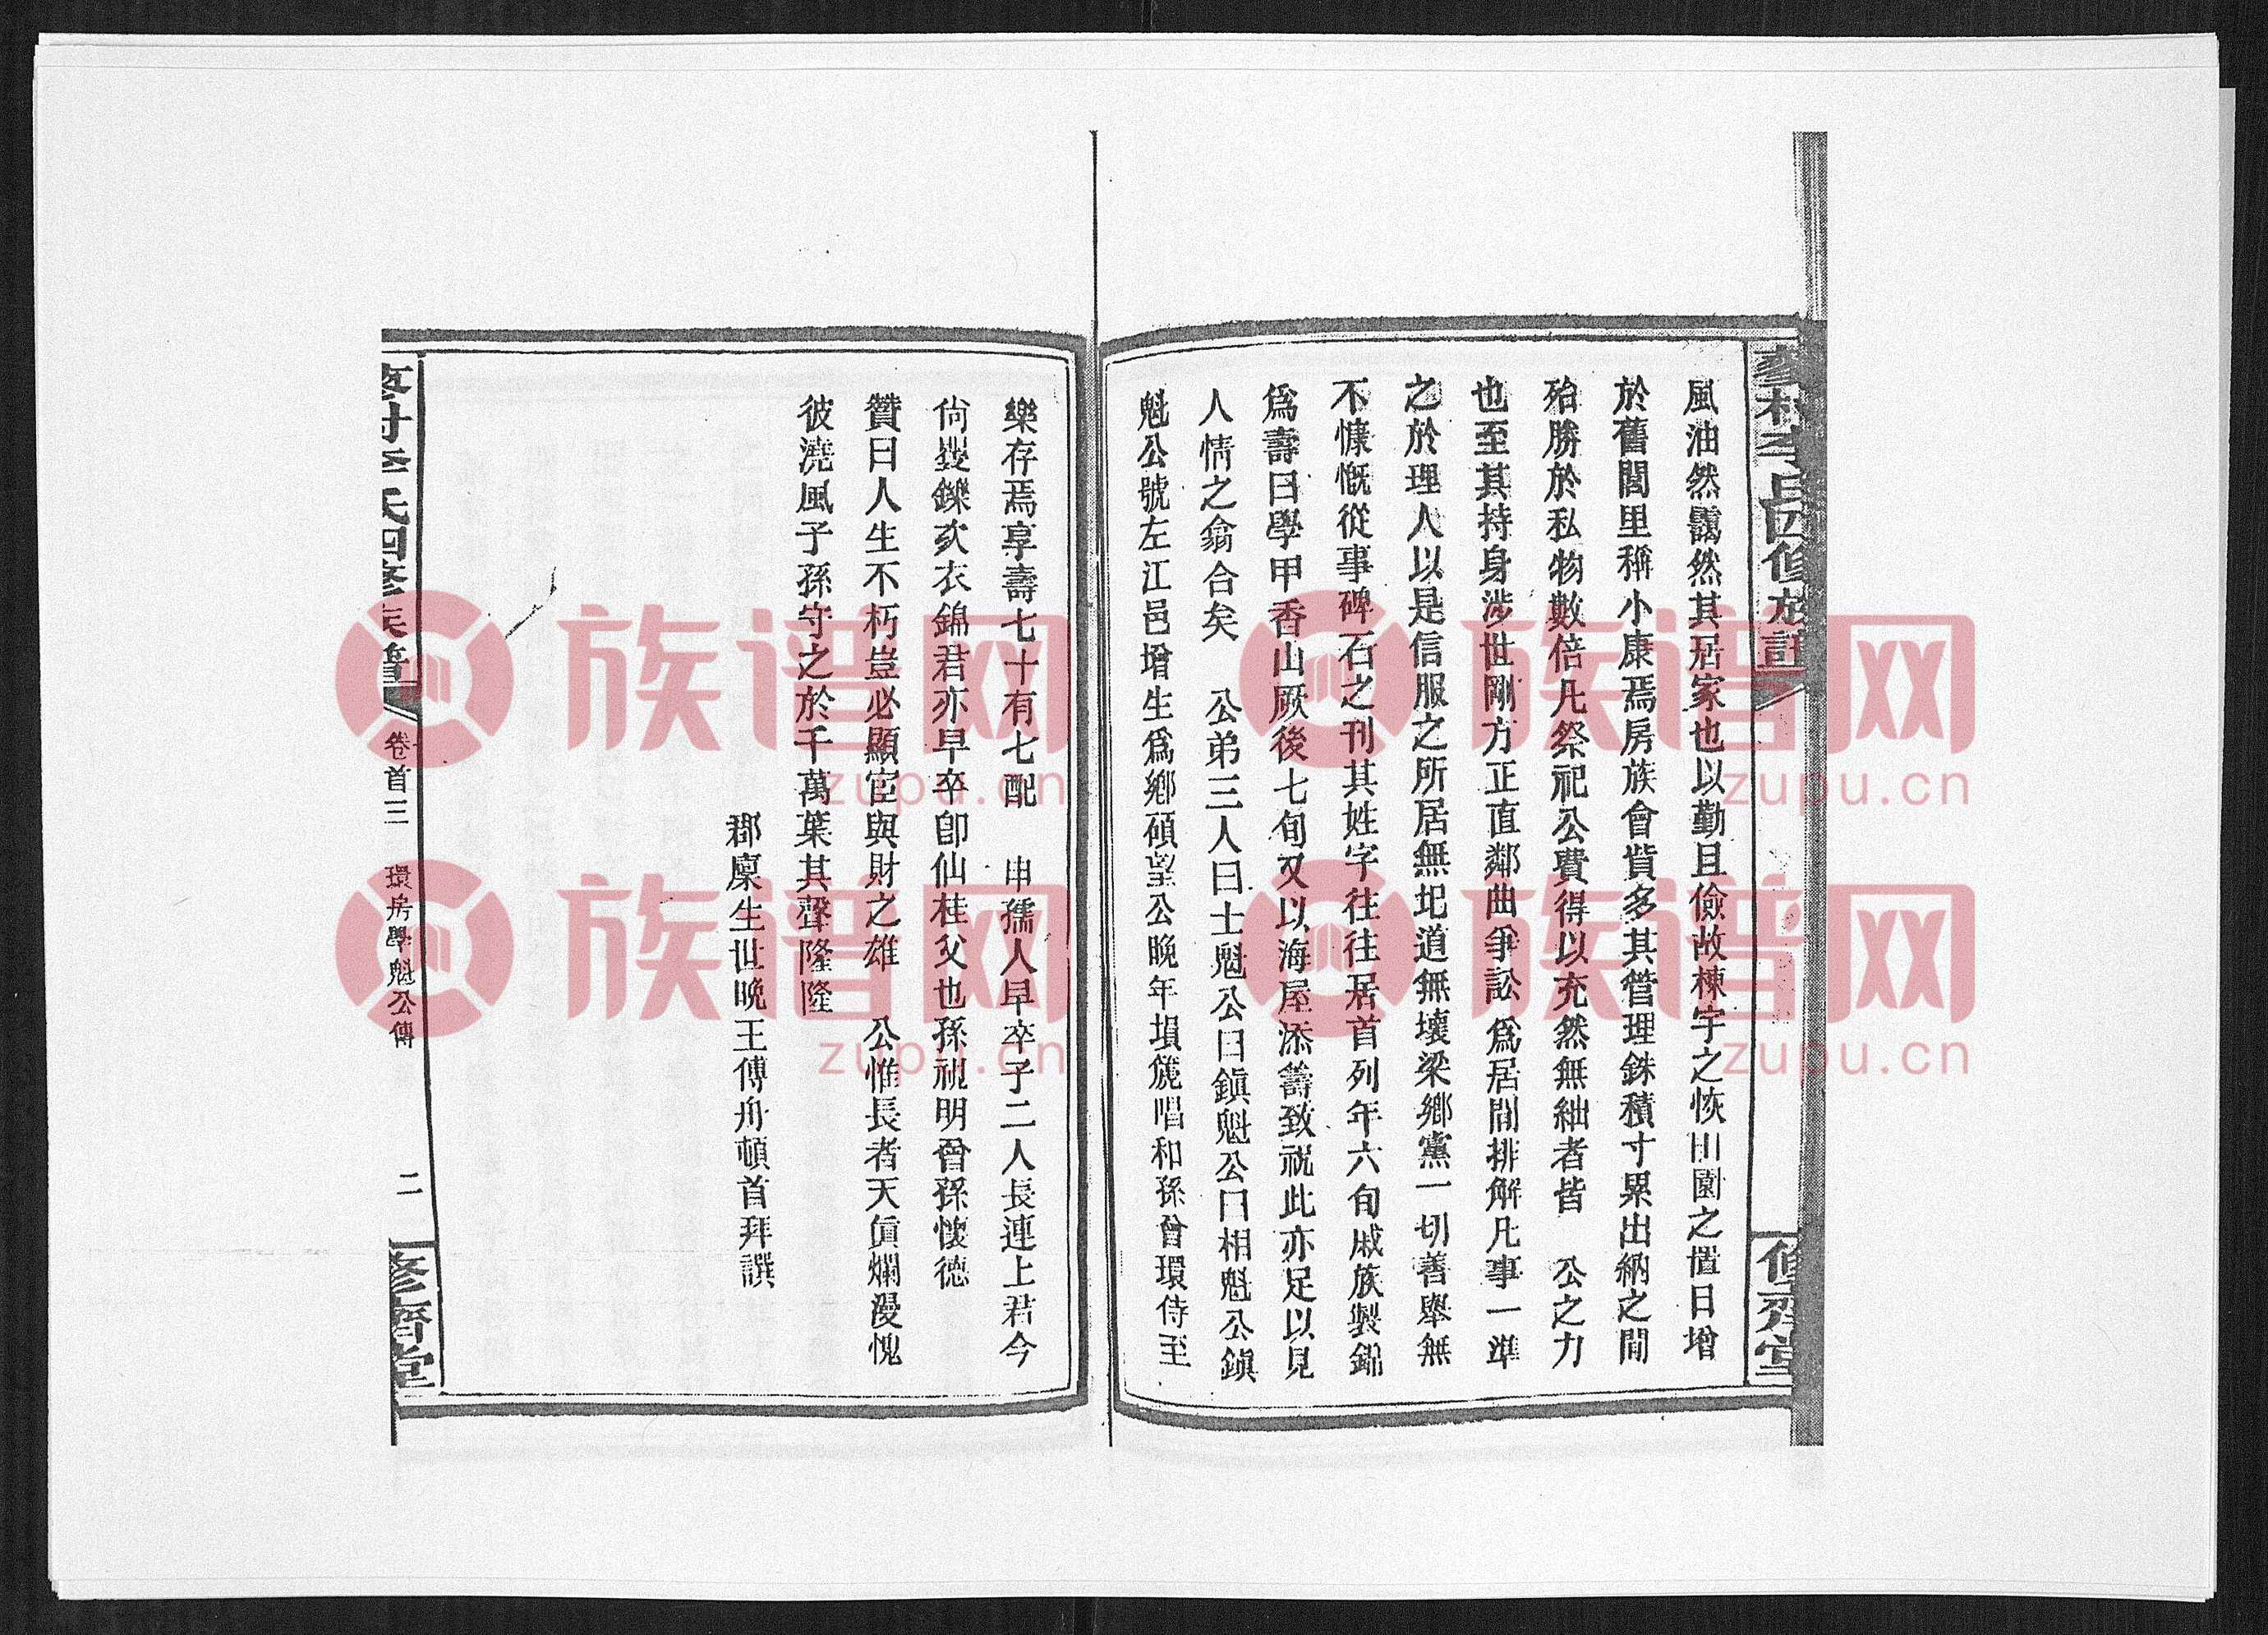 風油然靄然其居家也以勤且儉故棟宇之恢田園之置日增
於舊閭里稱小康焉房族會貲多其管理銖積寸累出納之間
殆勝於私物數倍凡祭祀公費得以充然無絀者皆 公之力
也至其持身涉世剛方正直鄰曲爭訟為居間排解凡事一準
之於理人以是信服之所居無圯道無壞梁鄉黨一切善舉無
不慷慨從事碑石之刊其姓字往往居首列年六旬戚族製錦
為壽曰學甲香山厥後七旬又以海屋添籌致祝此亦足以見
人情之翕合矣 公弟三人曰士魁公曰鎮魁公曰相魁公鎮
魁公號左江邑增生為鄉碩望公晚年塤篪唱和孫曾環侍至
樂存焉享壽七十有七配 申孺人早卒子二人長連上君今
尚矍鑠次衣錦君亦早卒卽仙桂父也孫視明曾孫懷德
贊曰人生不朽豈必顯宦與財之雄 公惟長者天眞爛漫愧
彼澆風子孫守之於千萬葉其聲隆隆
郡廩生世晩王傅舟頓首拜譔
李氏四修族譜
卷首三
環房學魁公傳
二
修齊堂
族谱网
zupu.cn
族谱网
zupu.cn
族谱网
zupu.cn
族谱网
zupu.cn